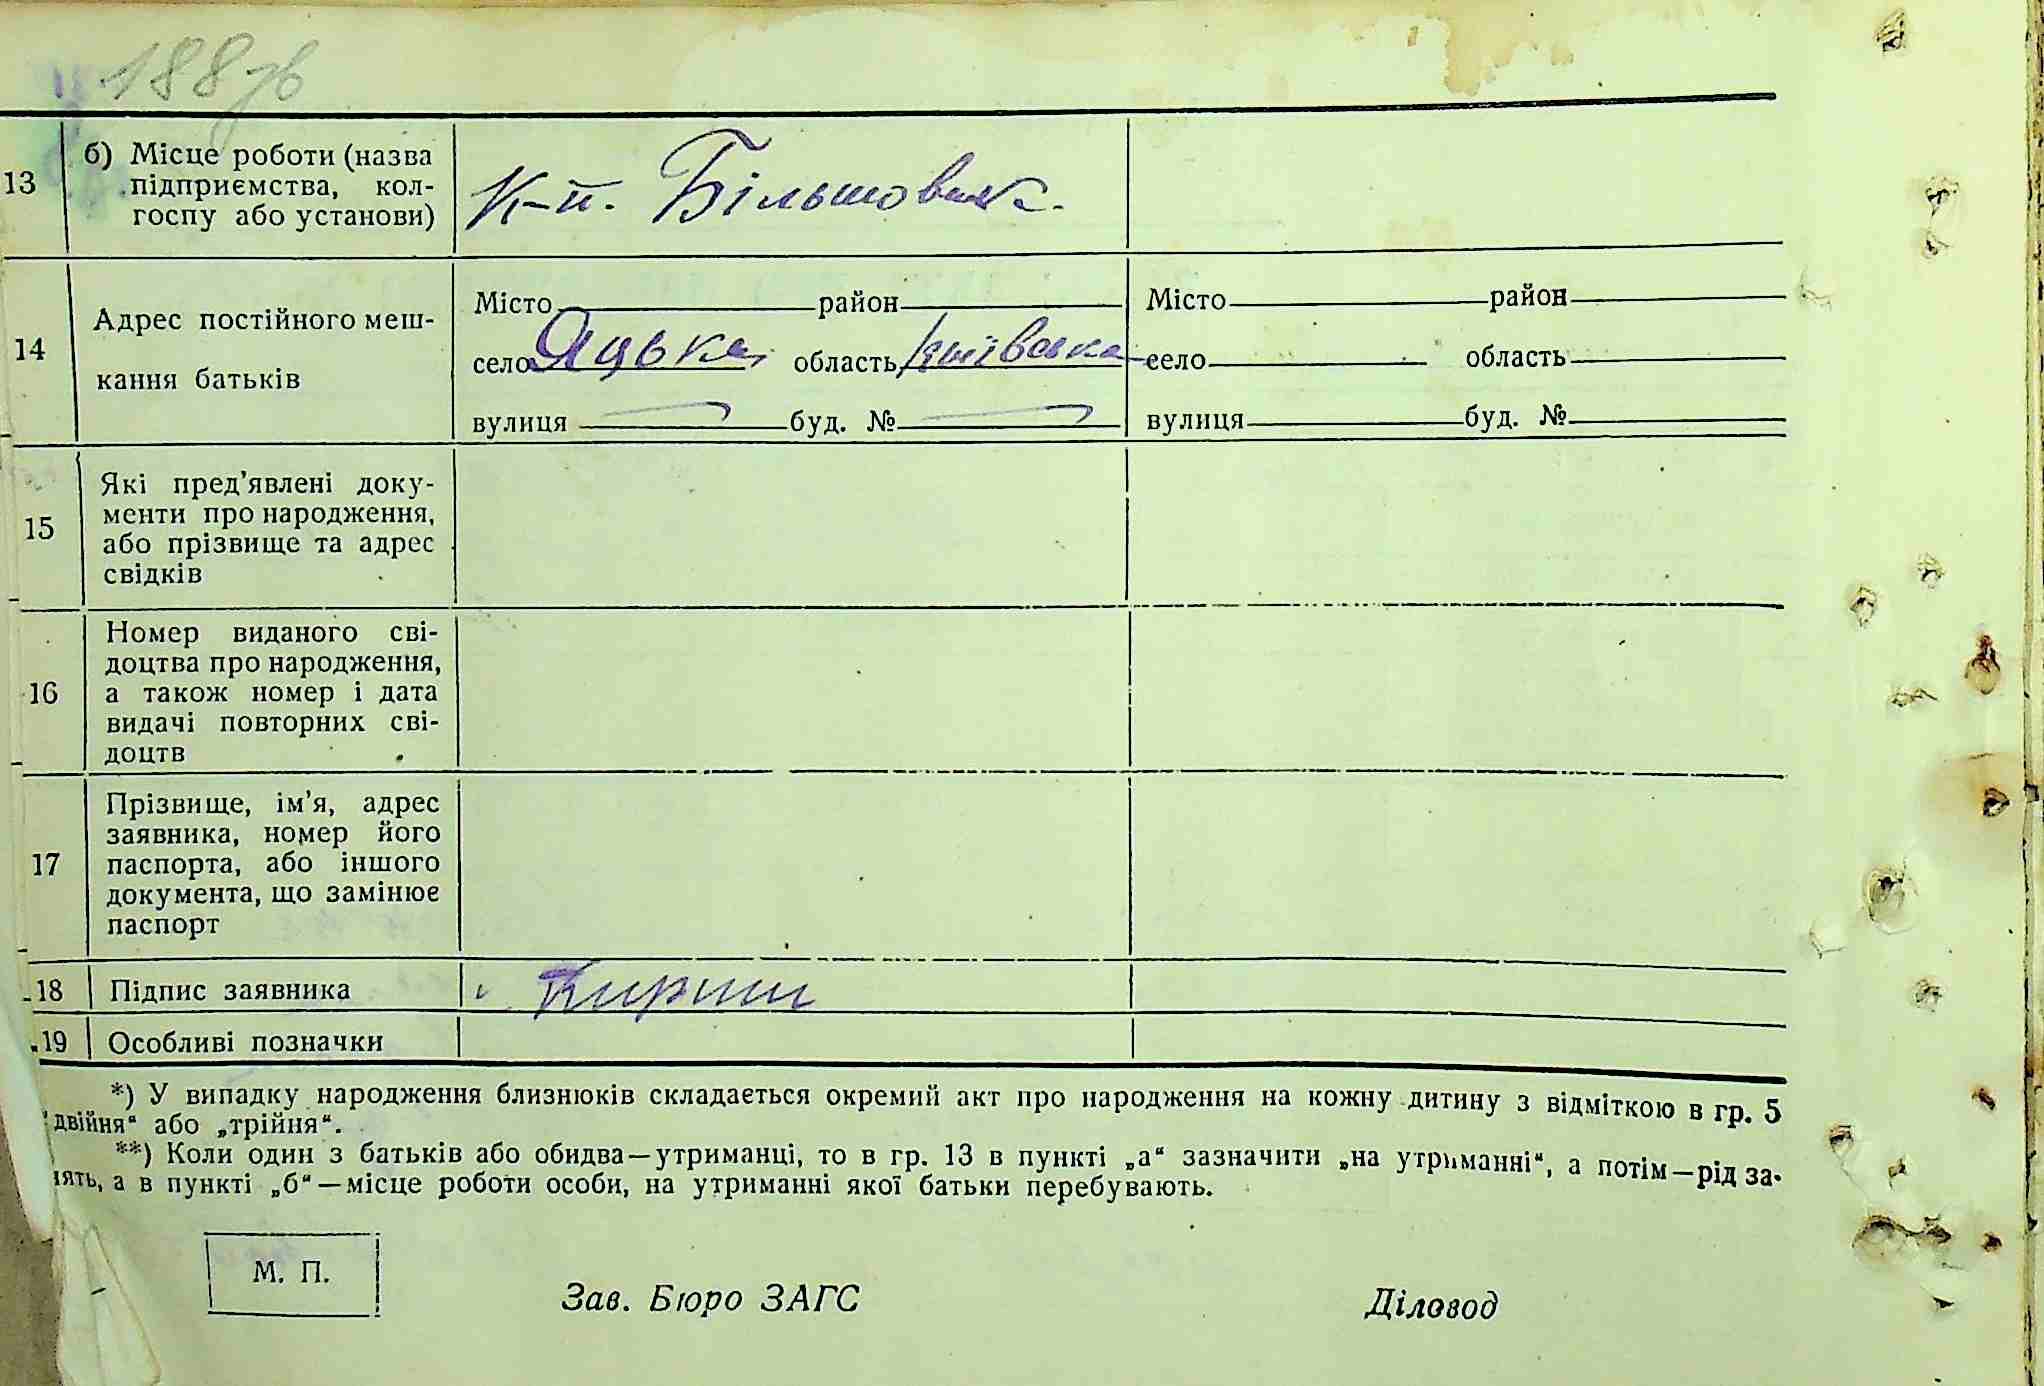 188 зв
13
б) Місце роботи (назва
підприємства, кол-
госпу або установи)
К-п. Більшовик.
14
Адрес постійного меш-
кання батьків
Місто район
село Яцька область Київська
вулиця буд. №
Місто район
село область
вулиця буд. №
15
Які пред'явлені доку-
менти про народження,
або прізвище та адрес
свідків
16
Номер виданого сві-
доцтва про народження,
а також номер і дата
видачі повторних сві-
доцтв
17
Прізвище, ім'я, адрес
заявника, номер його
паспорта, або іншого
документа, що замінює
паспорт
18
Підпис заявника
19
Особливі позначки
*) У випадку народження близнюків складається окремий акт про народження на кожну дитину з відміткою в гр. 5
двійня“ або „трійня“.
**) Коли один з батьків або обидва—утриманці, то в гр. 13 в пункті „а“ зазначити „на утриманні“, а потім—рід за-
нять, а в пункті „б“—місце роботи особи, на утриманні якої батьки перебувають.
М. П.
Зав. Бюро ЗАГС
Діловод